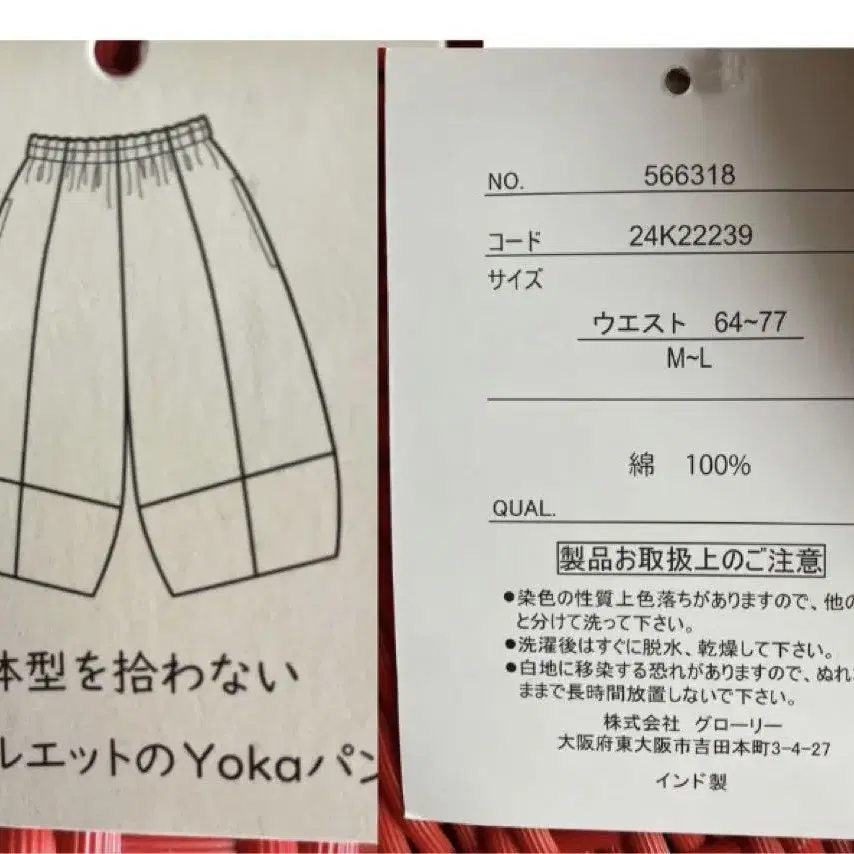 体型を拾わない
ルエットのYokaパン
NO. 566318
コード 24K22239
サイズ
ウエスト 64~77
M~L
綿 100%
QUAL.
製品お取扱上のご注意
●染色の性質上色落ちがありますので、他の
と分けて洗って下さい。
●洗濯後はすぐに脱水、乾燥して下さい。
●白地に移染する恐れがありますので、ぬれ
ままで長時間放置しないで下さい。
株式会社 グローリー
大阪府東大阪市吉田本町3-4-27
インド製